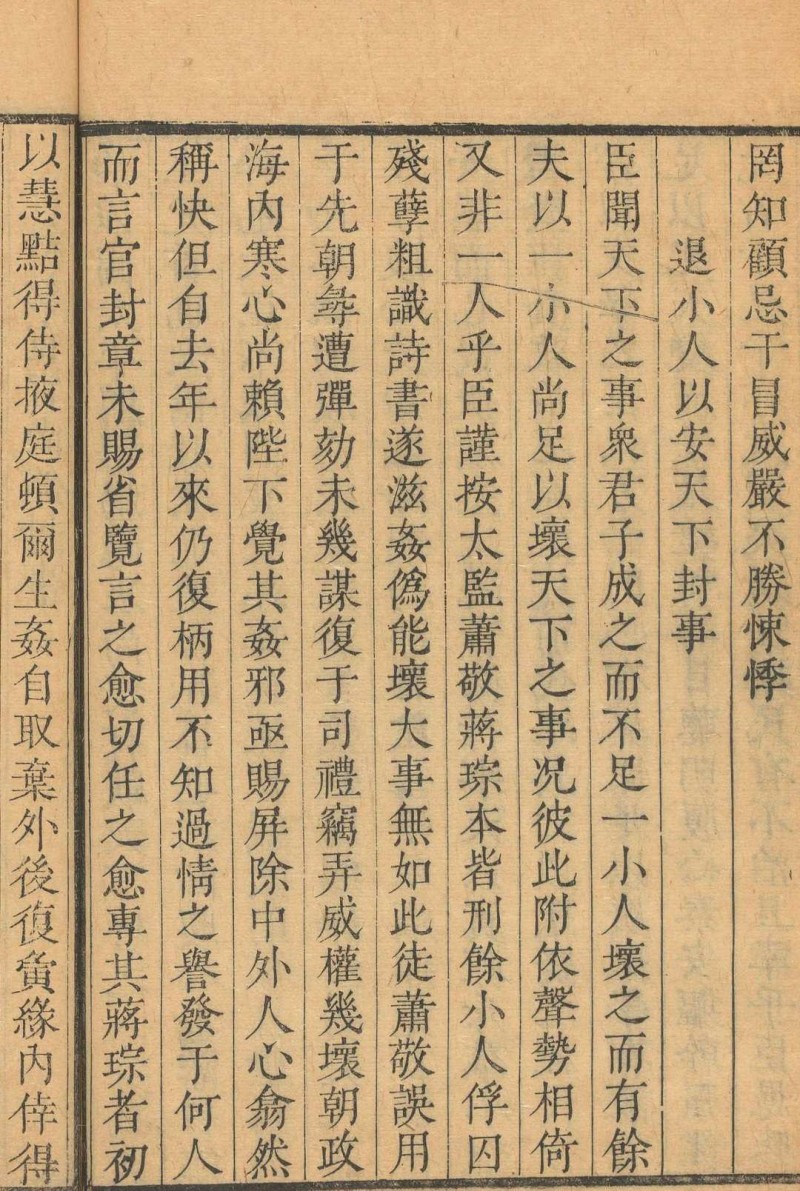 罔知顧忌干冒威嚴不勝悚悸
退小人以安天下封事
臣聞天下之事衆君子成之而不足一小人壞之而有餘
夫以一小人尚足以壞天下之事况彼此附依聲勢相倚
又非一人乎臣謹按太監蕭敬蔣琮本皆刑餘小人俘囚
殘孽粗識詩書遂滋姦僞能壞大事無如此徒蕭敬誤用
于先朝每遭彈劾未幾謀復于司禮竊弄威權幾壞朝政
海內寒心尚賴陛下覺其姦邪亟賜屏除中外人心翕然
稱快但自去年以來仍復柄用不知過情之譽發于何人
而言官封章未賜省覽言之愈切任之愈專其蔣琮者初
以慧黠得侍掖庭頓爾生姦自取棄外後復夤緣內倖得